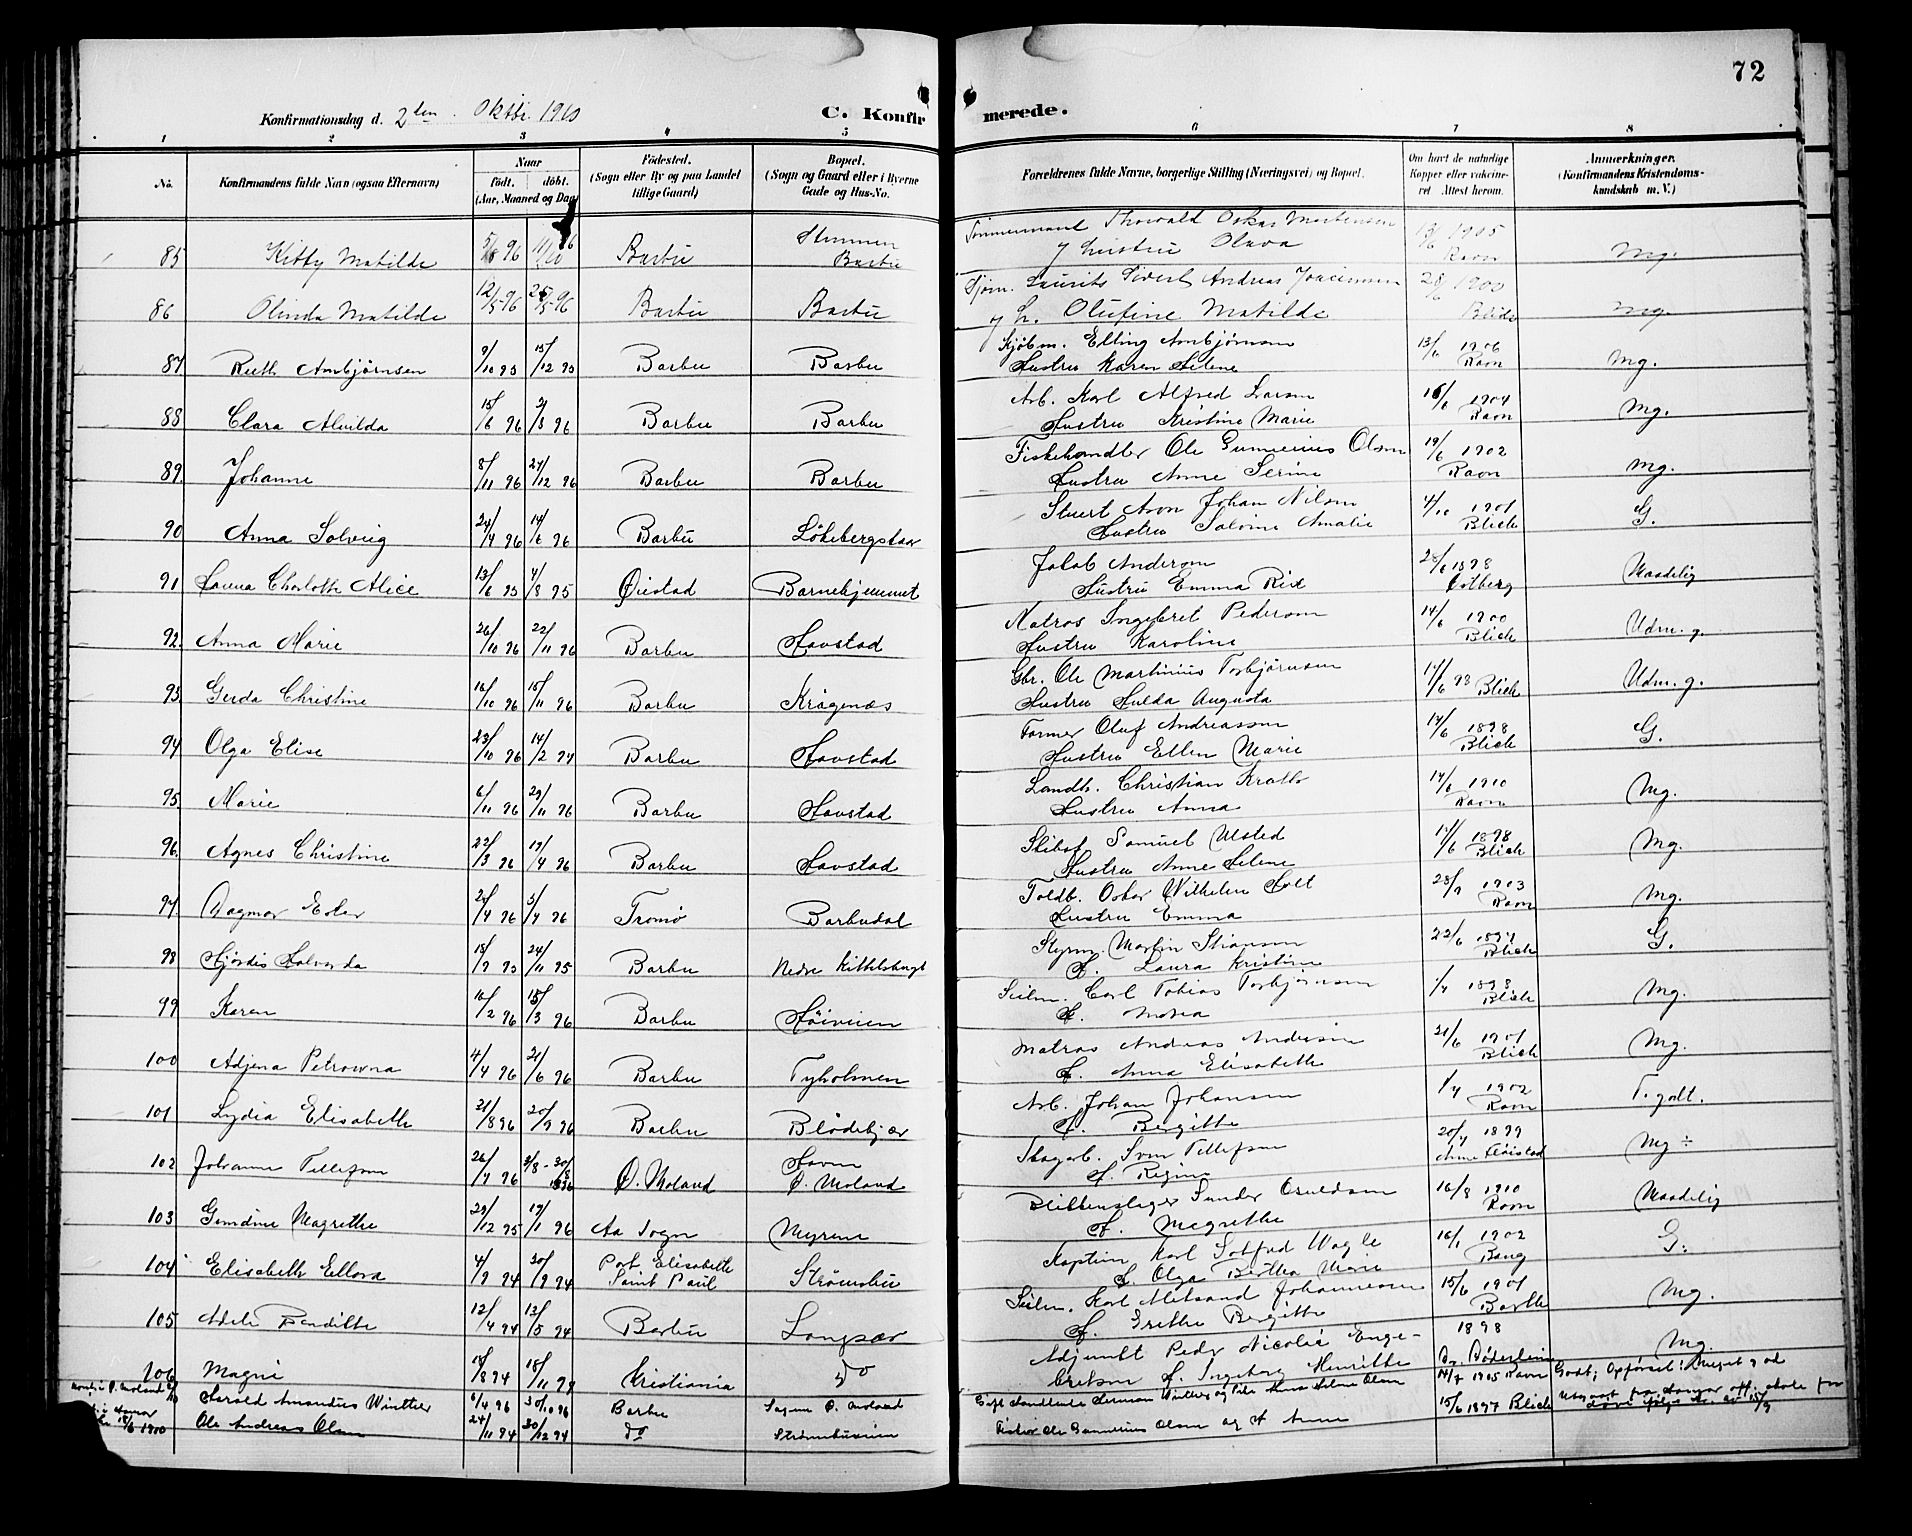 72
Konfirmationsdag d. 2den Oktbr 1910 C. Konfirmerede.
1 2 3 4 5 6 7 8
No. Konfirmandens fulde Navn (ogsaa Efternavn) Naar födt. döbt. (Aar, Maaned og Dag) Födested. (Sogn eller By og paa Landet tillige Gaard) Bopæl. (Sogn og Gaard eller i Byerne Gade og Hus-No. Forældrenes fulde Navne, borgerlige Stilling (Næringsvei) og Bopæl. Om havt de naturlige Kopper eller vaccineret Attest herom. Anmærkninger. (Konfirmandens Kristendomskundskab m. V.)
85 Kitty Matilde 5/8 96 11/10 96 Barbu Barbu Tømmermand Thorvald Oskar Mortensen
y hustru Olava 1905 Ravn Mg.
86 Olinda Matilde 12/5 96 Barbu Barbu Laurits Sivert Andreas
y h. Olufine Matilde 28/6 1900 Blich Mg.
87 Ruth Ambjørnsen 9/10 95 15/12 95 Barbu Barbu Kjøbm. Elling Ambjørnsen
Hustru Karen Helene 13/6 1906 Ravn Mg.
88 Clara Alvilda 15/6 96 2/8 96 Barbu Barbu Arb. Karl Alfred Larsen
Hustru Kristine Marie 16/6 1904 Ravn Mg.
89. Johanne 8/11 96 27/12 96 Barbu Barbu Fiskehandler Ole Gunnerius Olsen
Hustru Anne Serine 19/6 1902 Ravn Mg.
90 Anna Solveig 24/4 96 14/6 96 Barbu Stuert Aron Johan Nilsen
Hustru Salvine Amalie 4/10 1901 Blich G.
91 Hanna Charlotte Alice 13/6 95 4/8 95 Øiestad Barnehjemmet Jakob Andersen
Hustru Emma Rix 28/6 1898 Østberg Maadelig
92. Anna Marie 26/10 96 22/11 96 Barbu Havstad Matros Ingebret Pedersen
Hustru Karoline 14/6 1900 Blich Udm. g.
93 Gerda Christine 16/10 96 15/11 96 Barbu Krøgenes Gbr. Ole Martinius Torbjørnsen
Hustru Hulda Augusta 17/6 98 Blich Udm. g.
94 Olga Elise 23/10 96 14/2 97 Barbu Havstad Farmer Oluf Andreassen
Hustru Ellen Marie 14/6 1898 Blich G.
95. Marie 6/11 96 29/11 96 Barbu Havstad Landh. Christian
Hustru Anna 14/6 1910 Ravn Mg.
96. Agnes Christine 22/3 96 19/4 96 Barbu Havstad Skibsf. Samuel Ulsted
Hustru Anne Helene 17/6 1898 Blich Mg.
97. Dagmar Ester 96 96 Tromø Barbudal Toldb. Oskar Wilhelm Holt
Hustru Emma 1903 Ravn Mg.
98 Hjørdis Halvorda 18/9 95 24/11 95 Barbu Nedre Kittelsbugt Styrm. Martin Stiansen
H. Laura Kristine 22/6 1897 Blich G.
99 Karen 16/2 96 15/3 96 Barbu Høiveien Seilm. Carl Tobias Torbjørnsen
H. 1/7 1898 Blich Mg.
100 Adjena Petrowna 4/4 96 21/6 96 Barbu Tyholmen Matros Andreas Andersen
H. Anna Elisabeth 21/6 1901 Blich Mg.
101 Lydia Elisabeth 21/8 96 20/9 96 Barbu Blødekjær Arb. Johan Johansen
H. Birgitte 1/7 1902 Ravn T. godt.
102 Johanne Tellefsen 26/7 96 30/8 Ø. Moland Ø. Moland Skogarb. Sven Tellefsen
H. Regine 20/7 1899 Mg ÷
103 Gundine Magrethe 29/12 95 19/1 96 Aa Sogn Myrene Blikkenslager Sunder Osuldsen
H. Magrethe 16/8 1910 Ravn Maadelig
104 Elisabeth Ellora 4/9 94 30/9 94 Port Elisabeth Saint Paul Strømsbu Kaptein Karl Sofus Wagle
H. Olga Bertha Marie 16/1 1902 Bang G.
105 Adele Benditte 12/4 94 13/5 94 Barbu Langsæ Seilm. Karl Johannessen
H. Grethe Birgitte 15/6 1901 Barth Mg.
106 Magni Kristiania do Adjunkt Peder Nicolai Enge-
bretsen H. Ingeborg Henritte 1898 Mg.
Harald Amandus Winther 6/4 96 30/10 96 Barbu Ø. Moland 14/7 1905 Ravn Godt; Opførsel: Meget god
Ole Andreas Olsen 24/11 94 30/12 94 do Strømsbuveien Fisker Ole Gunnerius Olsen og H Anne 15/6 1897 Blich